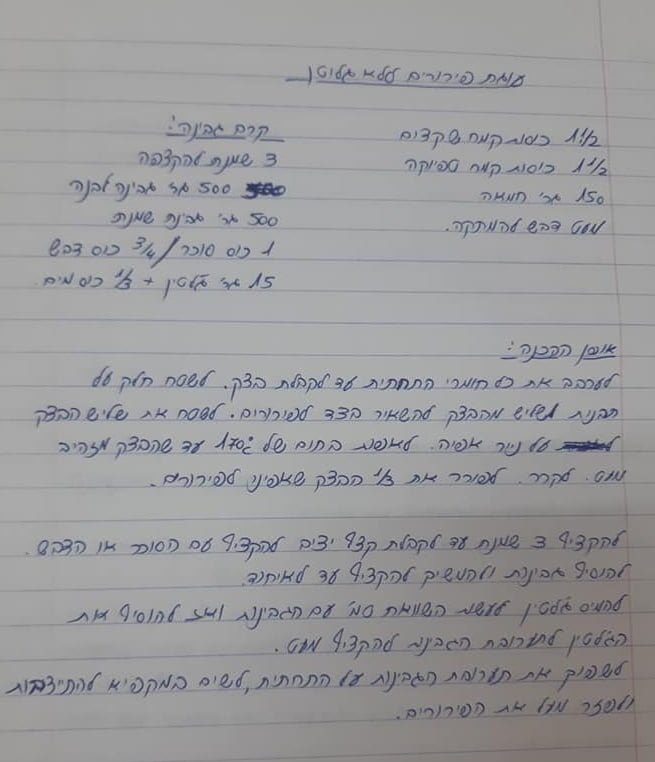 עוגת פירורים ללא גלוטן
1 1/2 כוסות קמח שקדים
1 1/2 כוסות קמח טפיוקה
150 גר' חמאה
מעט דבש להמתקה.
קרם גבינה:
3 שמנת להקצפה
500 גר' גבינה לבנה
500 גר' גבינת שמנת
1 כוס סוכר / 3/4 כוס דבש
15 גר' ג'לטין + 1/3 כוס מים.
אופן ההכנה:
לערבב את כל חומרי התחתית עד לקבלת בצק. לשטח חלק על
תבנית ושליש מהבצק להשאיר בצד לפירורים. לשטח את שליש הבצק
על נייר אפיה. לאפות בחום של 170° עד שהבצק מזהיב
מעט. לקרר. לפורר את 1/3 הבצק שאפינו לפירורים.
להקציף 3 שמנת עד לקבלת קצף יציב להקציף עם הסוכר או הדבש.
להוסיף גבינות ולהמשיך להקציף עד לאיחוד.
להמיס ג'לטין לעשות השוואת טמ' עם הגבינות ואז להוסיף את
הג'לטין לתערובת הגבינות להקציף מעט.
לשפוך את תערובת הגבינות על התחתית, לשים במקפיא להתייצבות
ולפזר מעל את הפירורים.